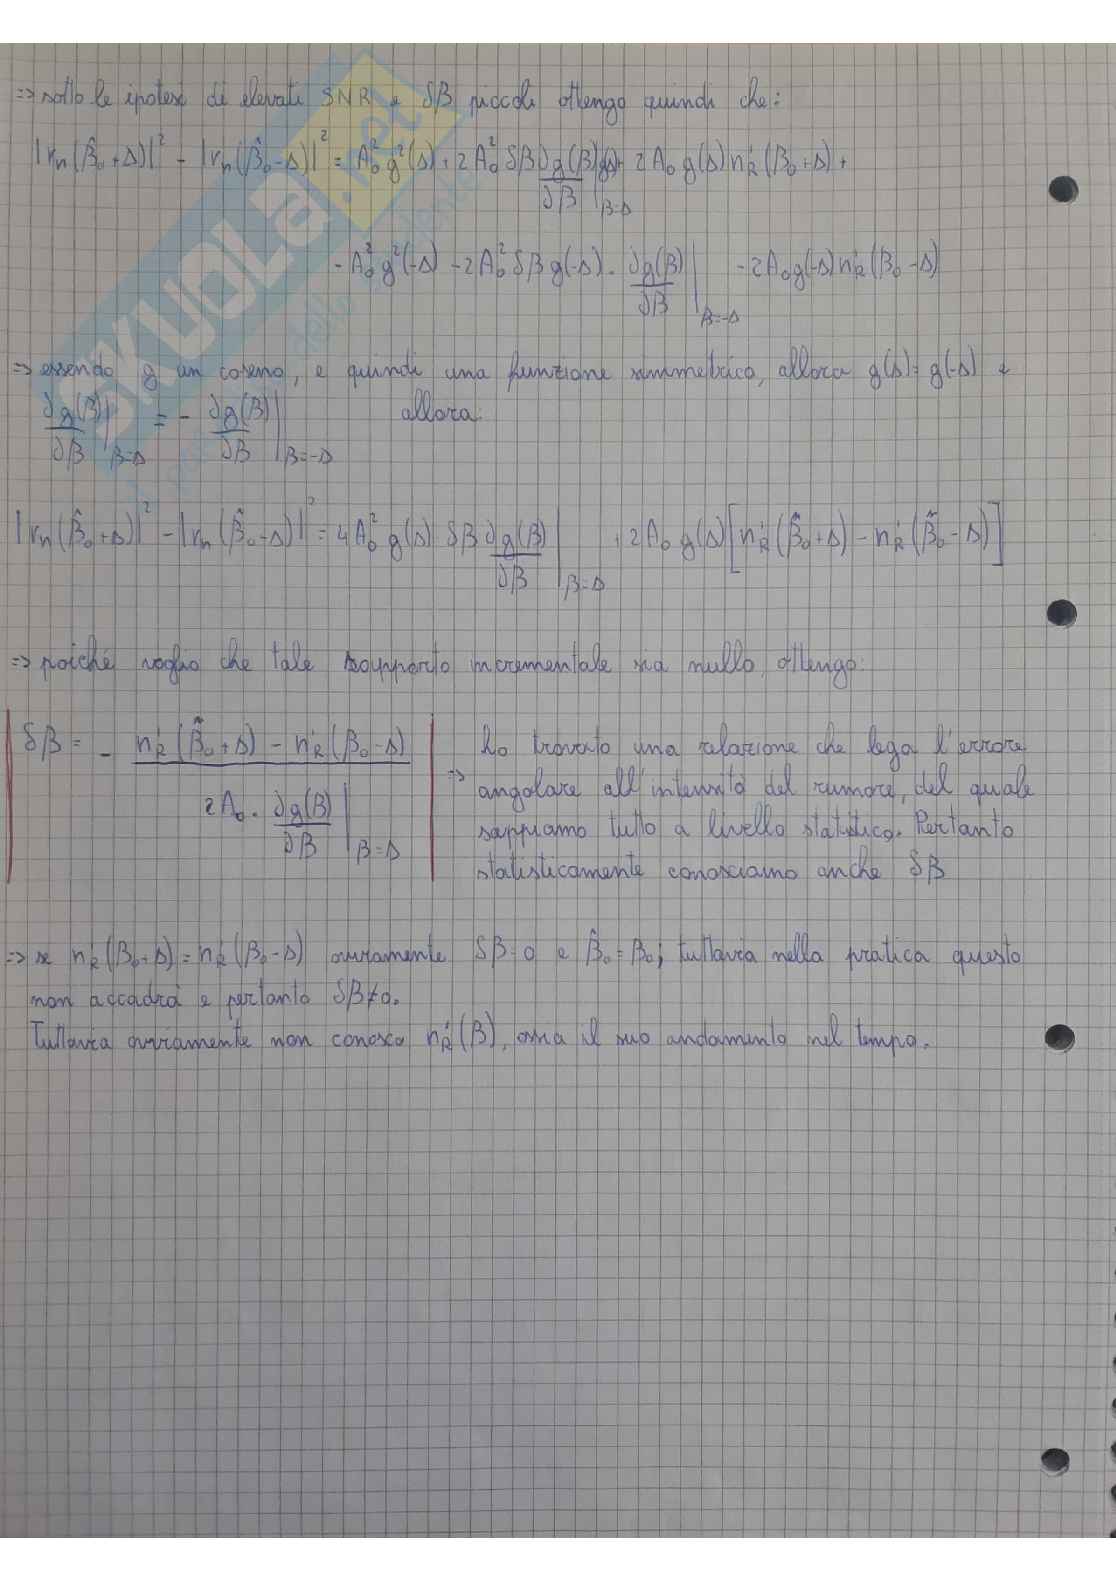 => sotto le ipotesi di elevati SNR e δβ piccoli ottengo quindi che:
|rn(β̂₀+Δ)|² - |rn(β̂₀-Δ)|² = A₀² g²(Δ) + 2A₀² δβ ∂g(β)/∂β|β=Δ g(Δ) + 2A₀ g(Δ) n'R(β₀+Δ) +
- A₀² g²(-Δ) - 2A₀² δβ g(-Δ) · ∂g(β)/∂β|β=-Δ - 2A₀ g(-Δ) n'R(β₀-Δ)
=> essendo g un coseno, e quindi una funzione simmetrica, allora g(Δ) = g(-Δ) e
∂g(β)/∂β|β=Δ = - ∂g(β)/∂β|β=-Δ allora:
|rn(β̂₀+Δ)|² - |rn(β̂₀-Δ)|² = 4A₀² g(Δ) δβ ∂g(β)/∂β|β=Δ + 2A₀ g(Δ)[n'R(β̂₀+Δ) - n'R(β̂₀-Δ)]
=> poiché voglio che tale rapporto incrementale sia nullo, ottengo:
δβ = - n'R(β̂₀+Δ) - n'R(β₀-Δ) / 2A₀ · ∂g(β)/∂β|β=Δ
=> ho trovato una relazione che lega l'errore
angolare all'intensità del rumore, del quale
sappiamo tutto a livello statistico. Pertanto
statisticamente conosciamo anche δβ
=> se n'R(β₀+Δ) = n'R(β₀-Δ) ovviamente δβ=0 e β̂₀=β₀; tuttavia nella pratica questo
non accadrà e pertanto δβ≠0.
Tuttavia ovviamente non conosco n'R(β), ossia il suo andamento nel tempo.
SKUOLA.net